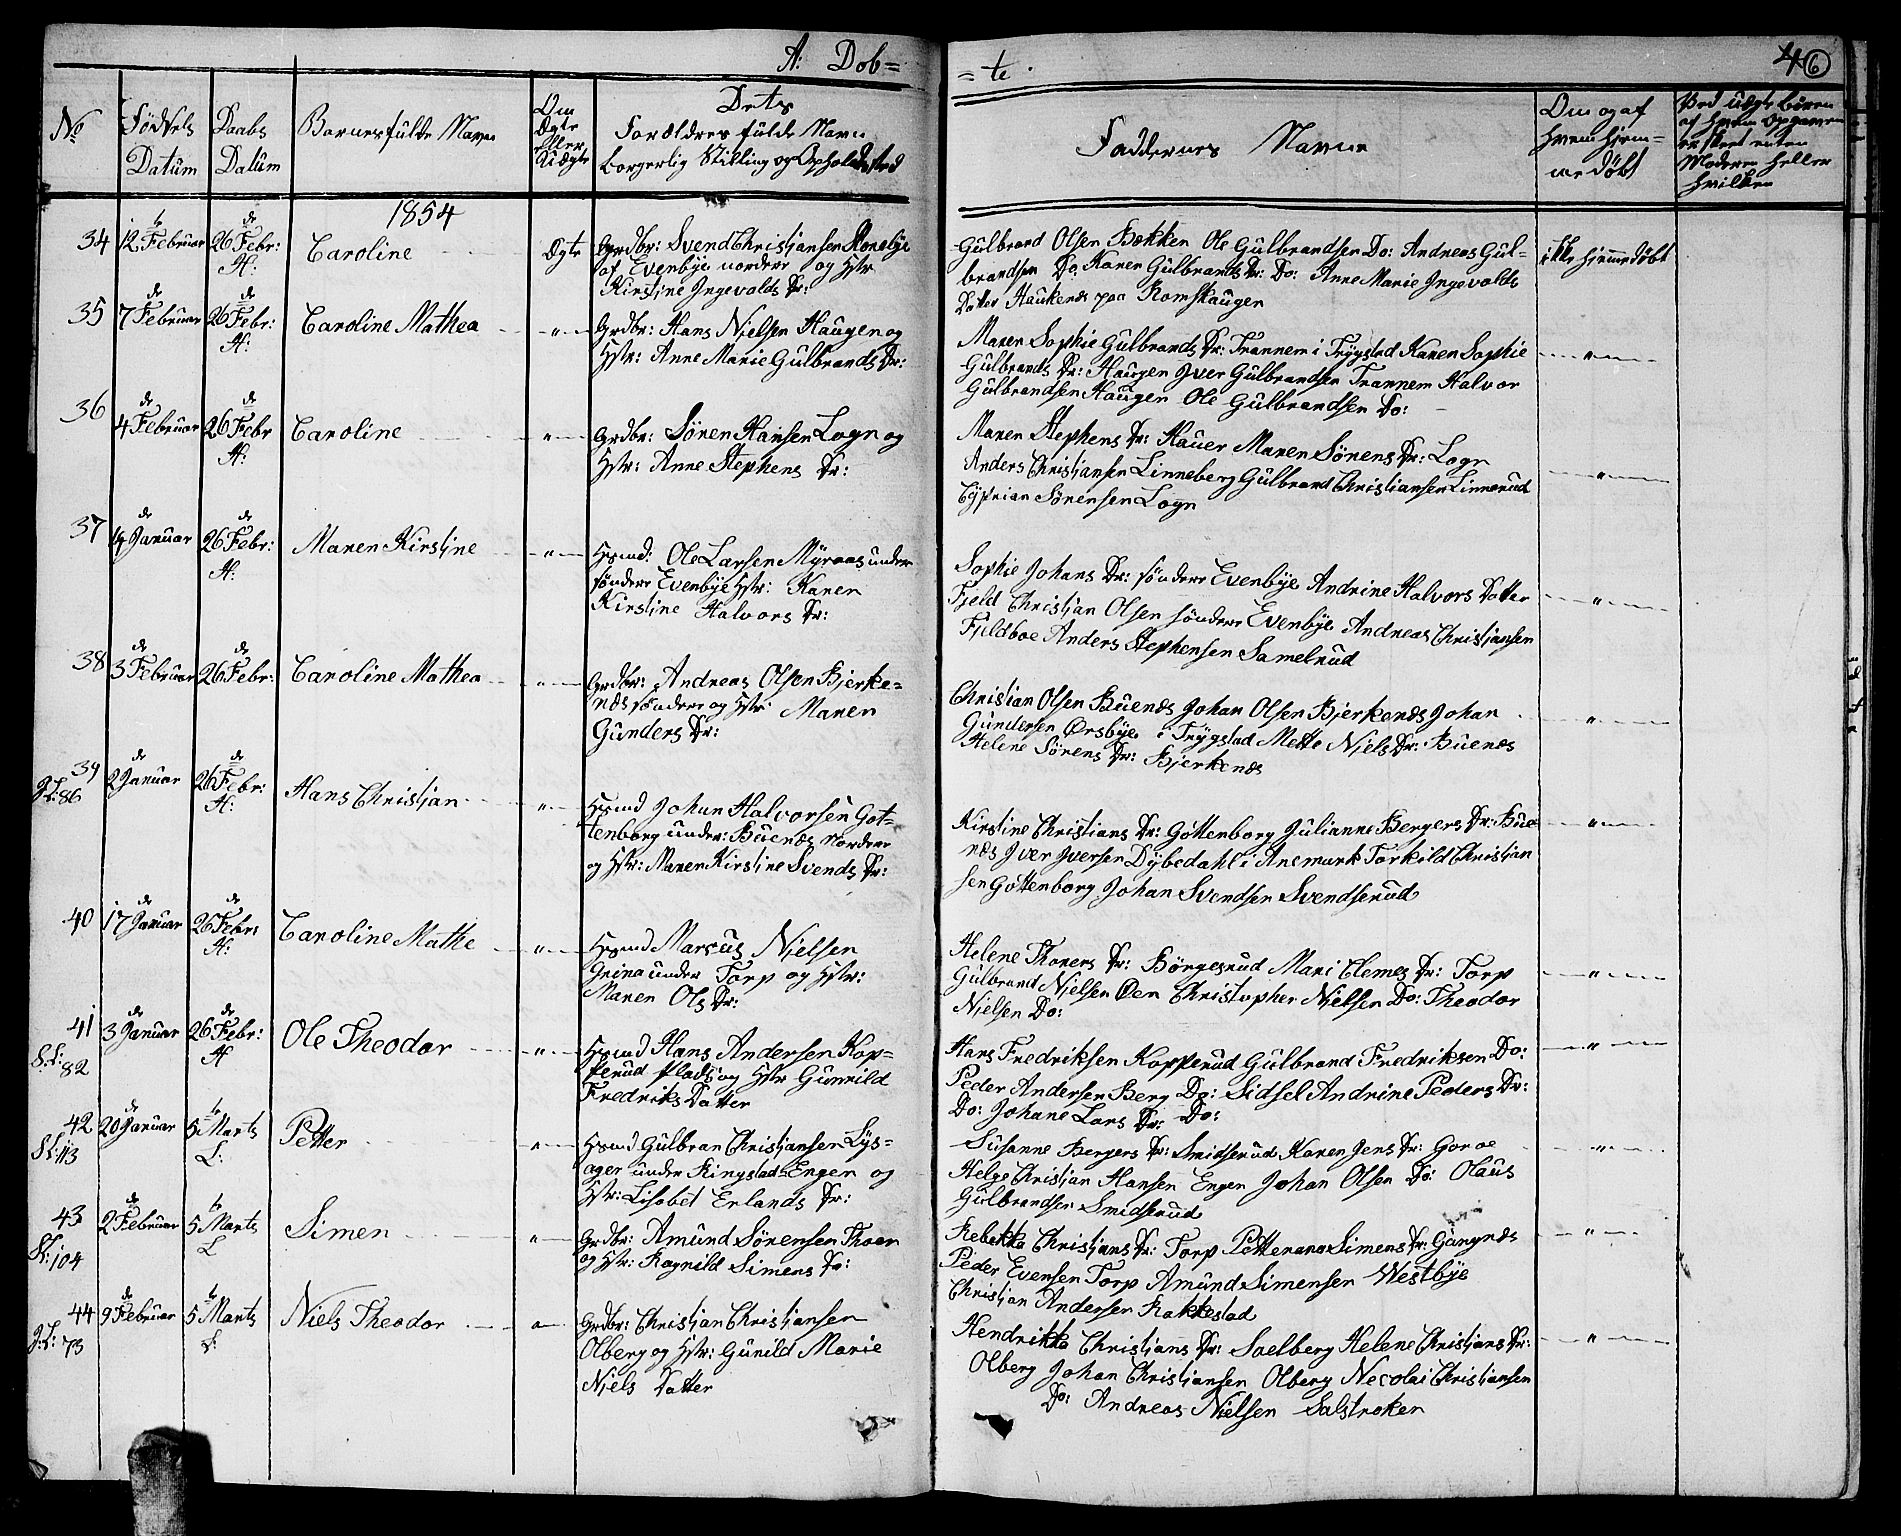 A: Døb=
=te.
4 6
No
Fødsels Datum
Daabs Datum
Barnets fulde Navn
Om Ægte eller Uægte
Dets Forældres fulde Navn borgerlig Stilling og Opholdssted
Faddernes Navne
Om og af hvem hjemmedøbt
Ved uægte Børen af hvem Opgaven er skeet enten Moderen heller hvilken
1854
34 12te Februar 26de Febr: H: Caroline Ægte Grdbr: Svend Christjansen Ronebye
af Evenbye nordere og Hstr
Kirstine Ingevalds Dr:
Gulbrand Olsen Bækken Ole Gulbrandsen Do: Andreas Gul-
brandsen Do Karen Gulbrands Dr: Do: Anne Marie Ingevalds
Dater Haukenæs paa Romskaugen
ikke hjemmedøbt
35 7de Februar 26de Febr: H: Caroline Mathea —"— Grdbr: Hans Nielsen Haugen og
Hstr: Anne Marie Gulbrands Dr:
Maren Sophie Gulbrands Dr: Trannem i Trygstad Karen Sophie
Gulbrands Dr: Haugen Iver Gulbrandsen Trannem Halvor
Gulbrandsen Haugen Ole Gulbrandsen Do:
—"—
36 4de Februar 26de Febr H: Caroline —"— Grdbr: Sören Hansen Logn og
Hstr: Anne Stephens Dr:
Maren Stephens Dr: Hauer Maren Sörens Dr: Logn
Anders Christjansen Linneberg Gulbrand Christiansen Linnerud
Cyprian Sørensen Logn
—"—
37 14de Januar 26de Febr: H: Maren Kirstine —"— Hsmd: Ole Larsen Myraas under
söndere Evenbye Hstr: Karen
Kirstine Halvors Dr:
Sophie Johans Dr: söndere Evenbye Andrine Halvors Datter
Fjeld Christjan Olsen söndere Evenbye Andreas Christjansen
Fjeldboe Anders Stephensen Samelrud
—"—
38 3de Februar 26de Febr: Caroline Mathea —"— Grdbr: Andreas Olsen Bjerke-
næs söndere og Hstr: Maren
Gunders Dr:
Christian Olsen Buenæs Johan Olsen Bjerkenæs Johan
Gundersen Ørsbye i Trygstad Mette Niels Dr: Buenæs
Helene Sörens Dr: Bjerkenæs
—"—
39 86 2de Januar 26de Febr: H: Hans Christjan —"— Hsmd Johan Halvorsen Got-
tenborg under: Buenæs nordere
og Hstr: Maren Kirstine Svends Dr:
Kirstine Christians Dr: Gottenborg Julianne Bergers Dr: Bue-
næs Iver Iversen Dybedahl i Anemark Torkild Christjan
sen Gottenborg Johan Svendsen Svendserud
—"—
40 17de Januar 26de Febr: H: Caroline Mathe —"— Hsmd Marcus Nielsen
Grina under Torp og Hstr:
Maren Ols Dr:
Helene Thorers Dr: Börgesrud Mari Clemes Dr: Torp
Gulbrand Nielsen Øen Christopher Nielsen Do: Theodor
Nielsen Do:
—"—
41 82 3de Januar 26de Febr: H Ole Theodor —"— Hsmd Hans Andersen Kop-
perud plads og Hstr Gunnild
Fredriks Datter
Hans Fredriksen Kopperud Gulbrand Fredriksen Do:
Peder Andersen Berg Do: Sidsel Andrine Peders Dr:
Do: Johane Lars Dr: Do:
—"—
42 113 20de Januar 5te Marts L: Petter —"— Hsmd Gulbran Christjansen Lys-
ager under Ringstad Engen og
Hstr: Lisabet Erlands Dr:
Susanne Bergers Dr: Smidserud Karen Jens Dr: Goroe
Helge Christjan Hansen Engen Johan Olsen Do: Olaus
Gulbrandsen Smidserud
—"—
43 104 2de Februar 5te Marts L Simen —"— Grdbr: Amund Sørensen Thoen
og Hstr: Ragnild Simens Dr:
Rebekka Christjans Dr: Torp Petterana Simens Dr: Gangnæs
Peder Evensen Torp Amund Simensen Westbye
Christjan Andersen Rakkestad
—"—
44 73 9de Februar 5te Marts L: Niels Theodor —"— Grdbr: Christjan Christjansen
Olberg og Hstr: Gunild Marie
Njels Datter
Hendrikka Christjans Dr: Soelberg Helene Christjans Dr:
Olberg Johan Christjansen Olberg Necolai Christjansen
Do: Andreas Nielsen Salstroken
—"—